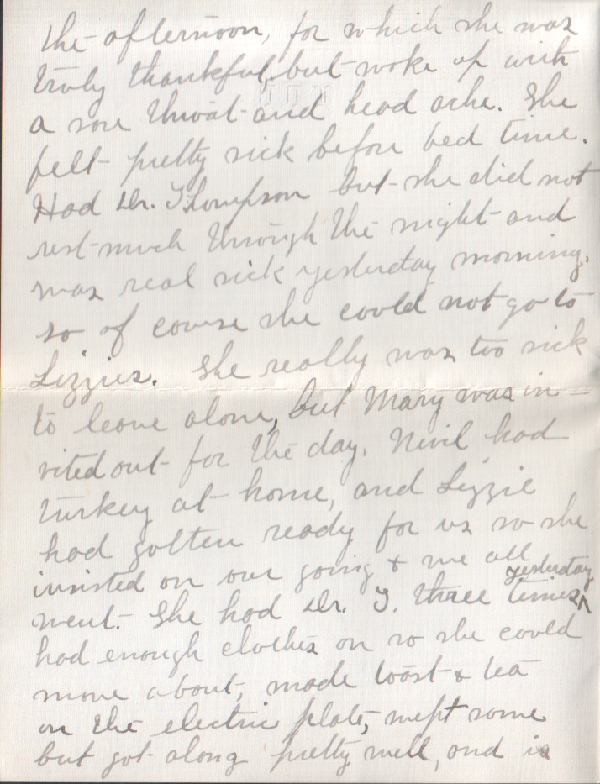 the afternoon, for which she was
truly thankful, but woke up with
a sore throat and head ache. She
felt pretty sick before bed time.
Had Dr. Thompson but she did not
rest much through the night and
was real sick yesterday morning,
so of course she could not go to
Lizzies. She really was too sick
to leave alone, but Mary was in-
vited out for the day. Nevil had
turkey at home, and Lizzie
had gotten ready for us so she
insisted on our going & we all
yesterday
went. She had Dr. T. three times ^
had enough clothes on so she could
move about, made toast & tea
on the electric plate, wept some
but got along pretty well, and is